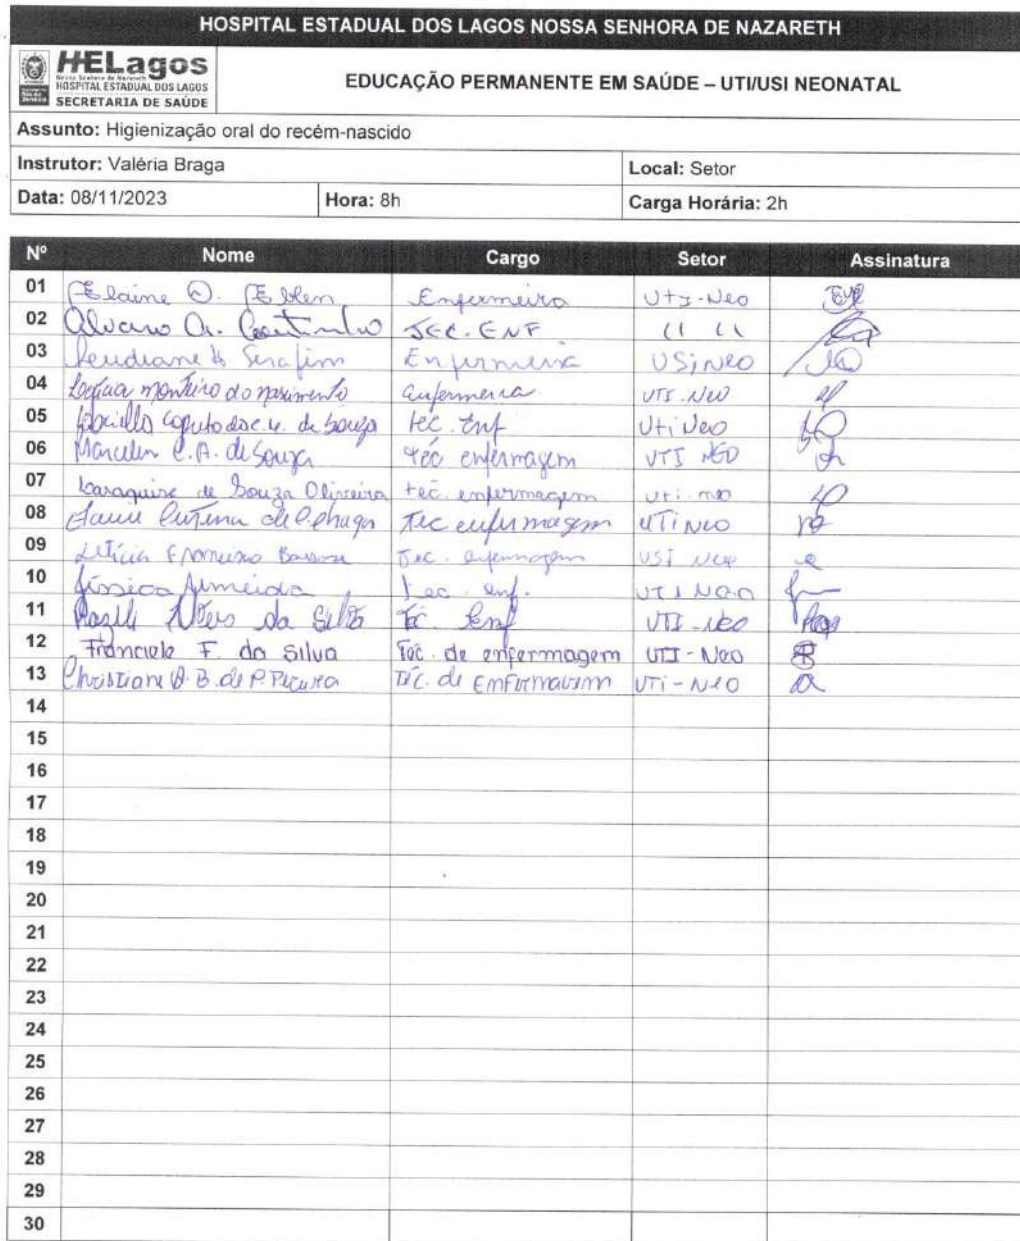 HOSPITAL ESTADUAL DOS LAGOS NOSSA SENHORA DE NAZARETH
HELagos
HOSPITAL ESTADUAL DOS LAGOS
SECRETARIA DE SAÚDE
EDUCAÇÃO PERMANENTE EM SAÚDE – UTI/USI NEONATAL
Assunto: Higienização oral do recém-nascido
Instrutor: Valéria Braga Local: Setor
Data: 08/11/2023 Hora: 8h Carga Horária: 2h
Nº Nome Cargo Setor Assinatura
01 Elaine Enfermeira UTI-Neo
02 Alvaro A. Coutinho TEC. ENF 11 11
03 Serafim Enfermeira USI NEO
04 monteiro do nascimento enfermeira UTI-Neo
05 de Souza tec. Enf Uti Neo
06 C.A. de Souza téc enfermagem UTI NEO
07 de Souza Oliveira tec. enfermagem uti-neo
08 Tec enfermagem UTI NEO
09 Letícia Tec. enfermagem USI Neo
10 Jéssica Almeida Tec. enf. UTI NEO
11 da Silva Téc. Enf UTI-Neo
12 Franciele F. da Silva Téc. de enfermagem UTI-Neo
13 Christiane B. de P. Téc. de Enfermagem UTI-Neo
14
15
16
17
18
19
20
21
22
23
24
25
26
27
28
29
30